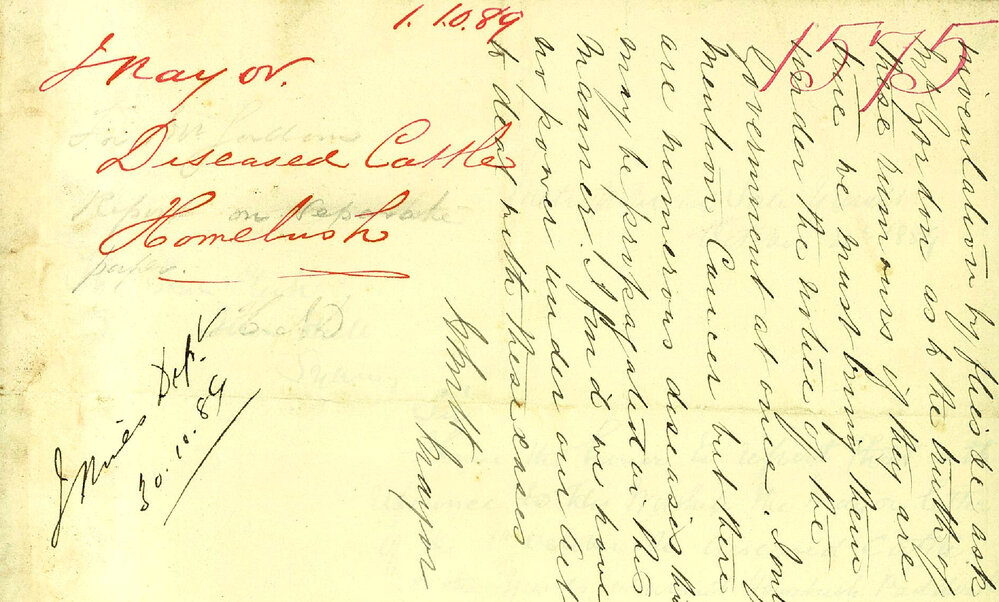 1.10.89
1575
Mayor.
Diseased Cattle
Homebush
Dept
30.10.89
by flies &c ask
Mr Gordon as to the truth of
these rumours if they are
true we must bring them
under the notice of the
Government at once. I only
mention Cancer but there
are numerous diseases that
may be propagated in this
manner. I find we have
no power under our Act
to deal with these cases
Mayor